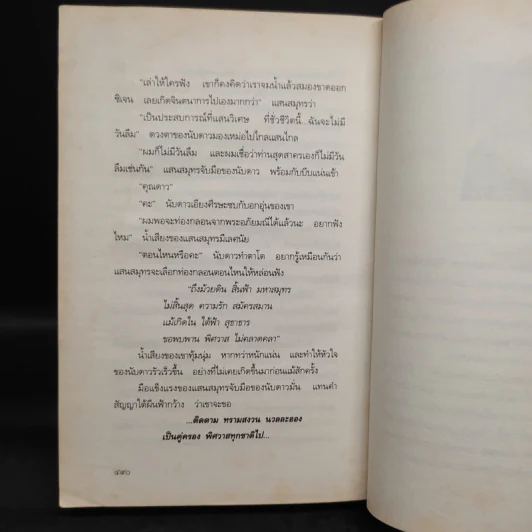 "เล่าให้ใครฟัง เขาก็คงคิดว่าเราจมน้ำแล้วสมองขาดออก
ซิเจน เลยเกิดจินตนาการไปเองมากกว่า" แสนสมุทรว่า
"เป็นประสบการณ์ที่แสนวิเศษ ที่ชั่วชีวิตนี้...ฉันจะไม่มี
วันลืม" ดวงตาของนับดาวมองเหม่อไปไกลแสนไกล
"ผมก็ไม่มีวันลืม และผมเชื่อว่าท่านสุดสาครเองก็ไม่มีวัน
ลืมเช่นกัน" แสนสมุทรจับมือของนับดาว พร้อมกับบีบแน่นเข้า
"คุณดาว"
"คะ" นับดาวเอียงศีรษะซบกับอกอุ่นของเขา
"ผมพอจะท่องกลอนจากพระอภัยมณีได้แล้วนะ อยากฟัง
ไหม" น้ำเสียงของแสนสมุทรมีเลศนัย
"ตอนไหนหรือคะ" นับดาวทำตาโต อยากรู้เหมือนกันว่า
แสนสมุทรจะเลือกท่องกลอนตอนไหนให้หล่อนฟัง
"ถึงม้วยดิน สิ้นฟ้า มหาสมุทร
ไม่สิ้นสุด ความรัก สมัครสมาน
แม้เกิดใน ใต้ฟ้า สุธาธาร
ขอพบพาน พิศวาส ไม่คลาดคลา"
น้ำเสียงของเขาทุ้มนุ่ม หากทว่าหนักแน่น และทำให้หัวใจ
ของนับดาวรัวเร็วขึ้น อย่างที่ไม่เคยเกิดขึ้นมาก่อนแม้สักครั้ง
มือแข็งแรงของแสนสมุทรจับมือของนับดาวมั่น แทนคำ
สัญญาใต้ผืนฟ้ากว้าง ว่าเขาจะขอ
...ติดตาม ทรามสงวน นวลละออง
เป็นคู่ครอง พิศวาสทุกชาติไป...